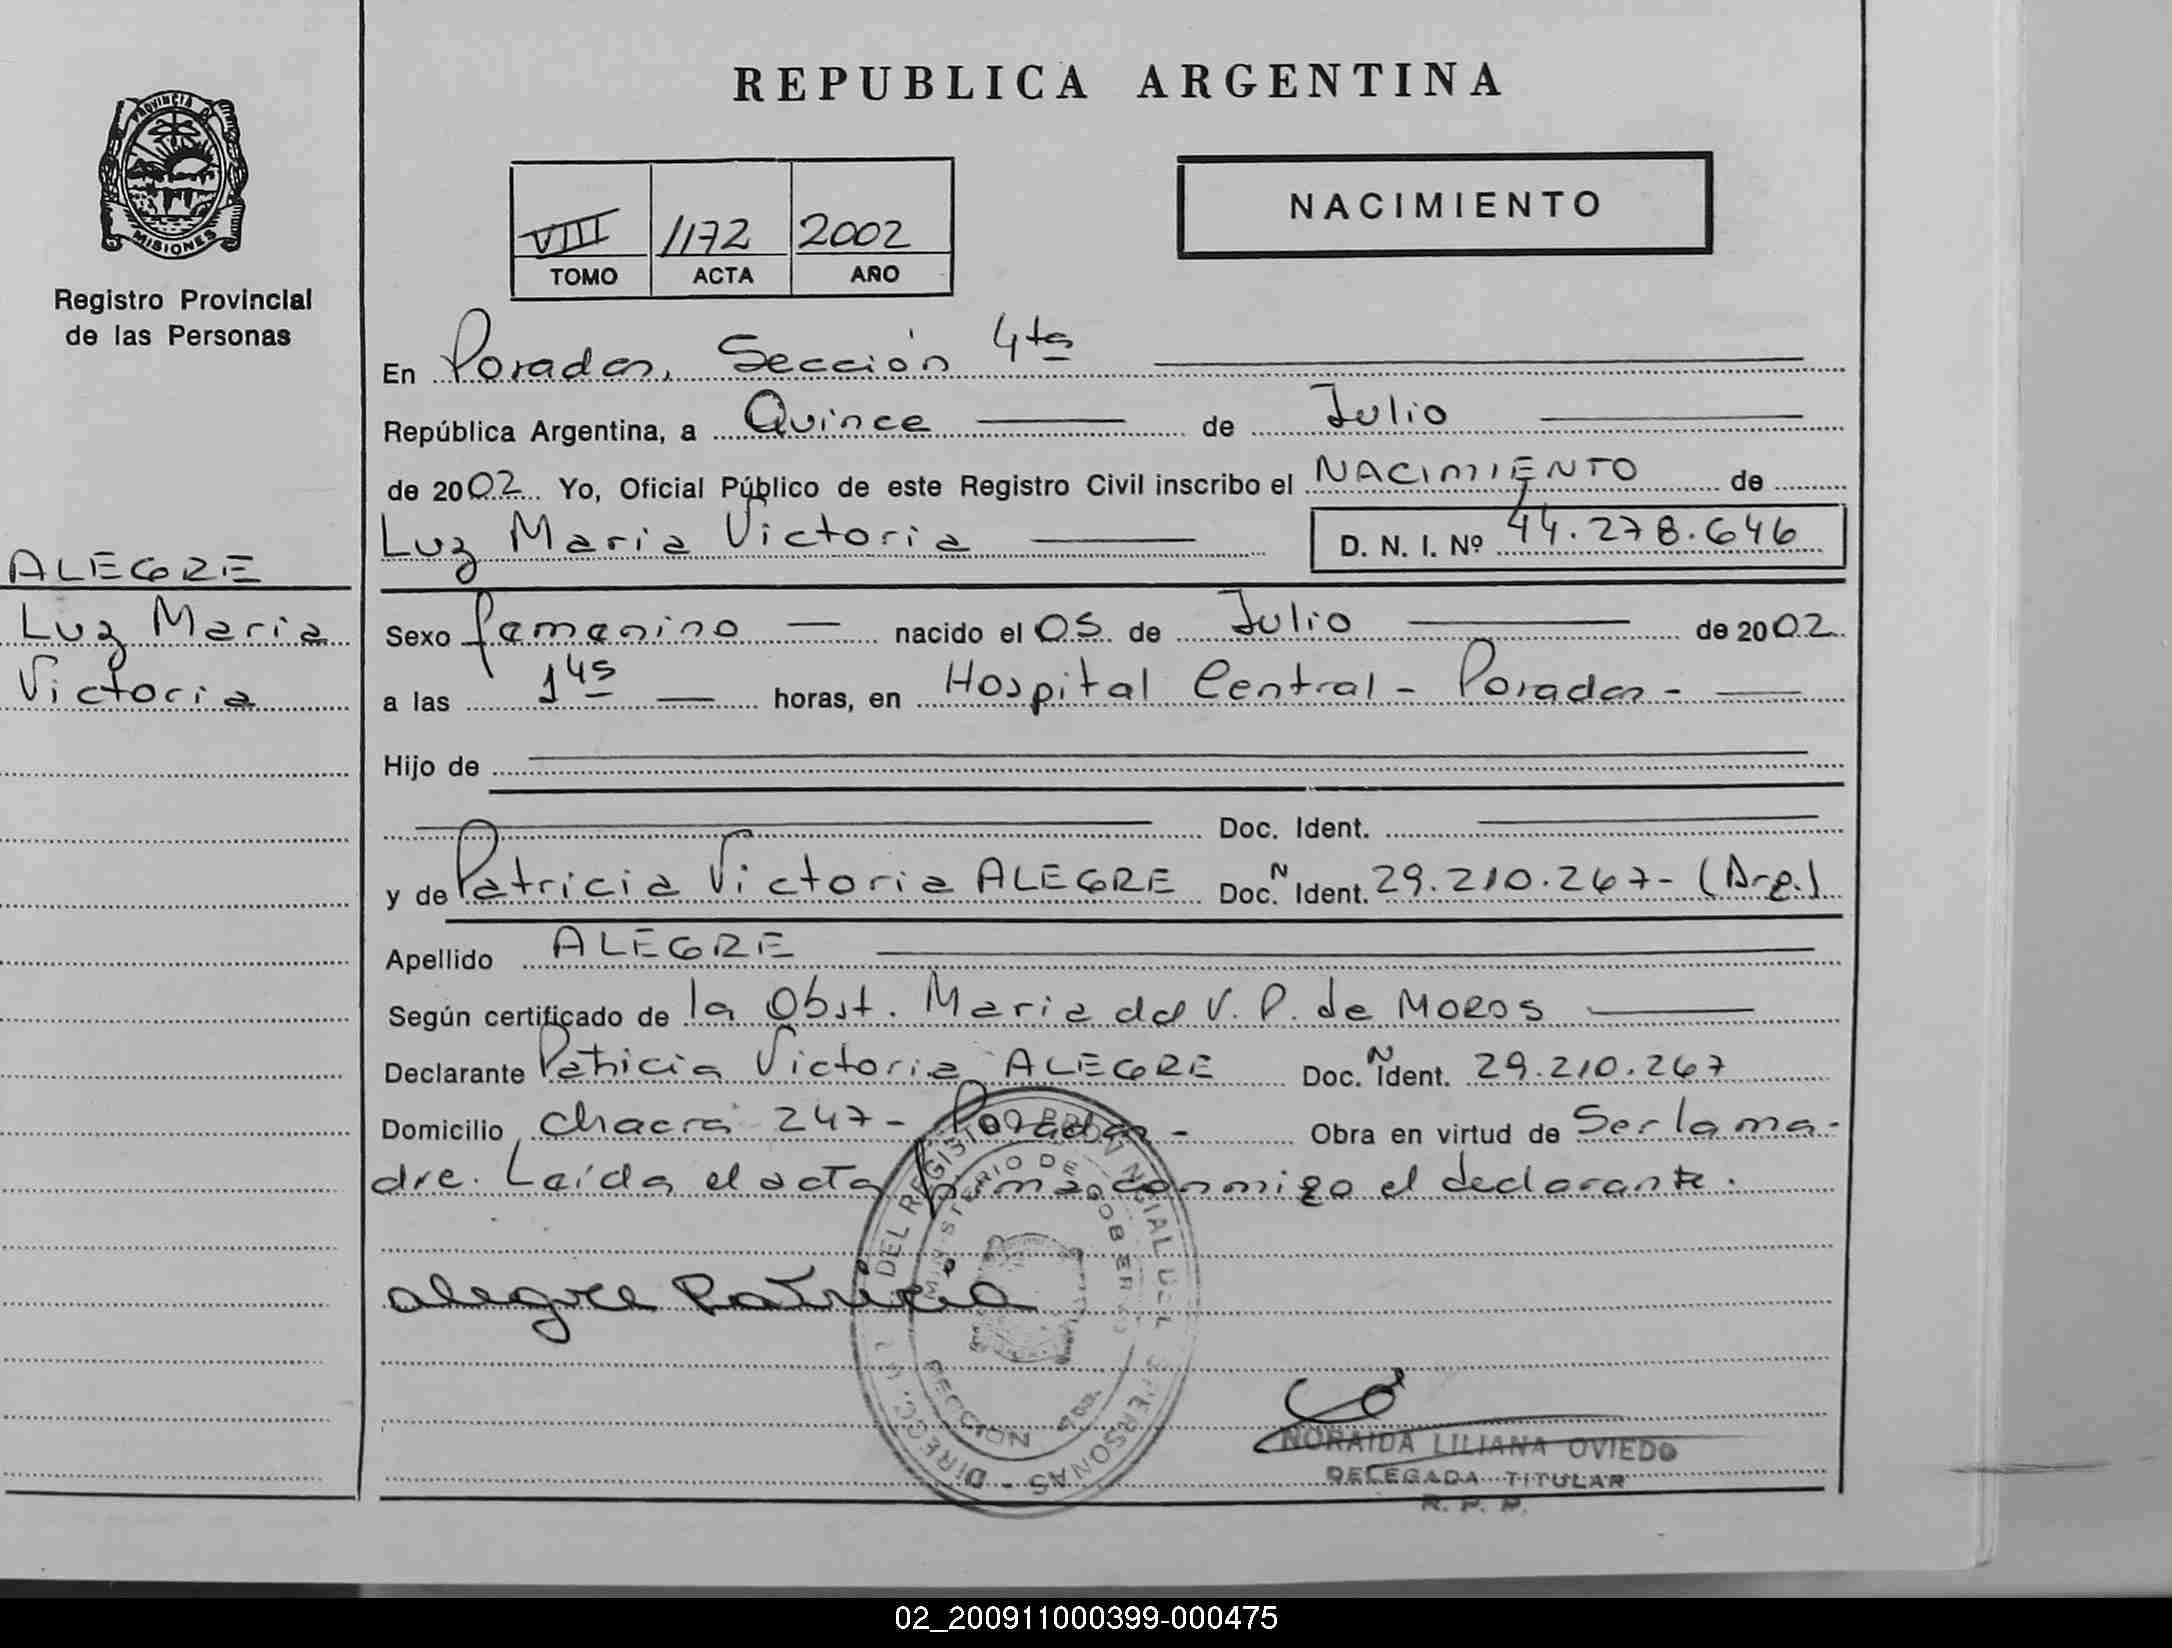 REPUBLICA ARGENTINA
PROVINCIA DE
MISIONES
Registro Provincial
de las Personas
NACIMIENTO
VIII 1172 2002
TOMO ACTA AÑO
En Posadas, Sección 4ta
República Argentina, a Quince de Julio
de 2002 Yo, Oficial Público de este Registro Civil inscribo el NACIMIENTO de
Luz Maria Victoria D. N. I. Nº 44.278.646
ALEGRE
Luz Maria
Victoria
Sexo femenino nacido el 05 de Julio de 2002
a las 1 45 horas, en Hospital Central - Posadas -
Hijo de
Doc. Ident.
y de Patricia Victoria ALEGRE Doc. N Ident. 29.210.267- (Arg.)
Apellido ALEGRE
Según certificado de la Obst. Maria del V. P. de MOROS
Declarante Patricia Victoria ALEGRE Doc. N Ident. 29.210.267
Domicilio chacra 247- Posadas - Obra en virtud de Ser la ma-
dre. Leída el acta firma conmigo el declarante.
alegre Patricia
DIRECC. DEL REGISTRO PROVINCIAL DE PERSONAS -
MINISTERIO DE GOBIERNO
NORAIDA LILIANA OVIEDO
DELEGADA TITULAR
R. P. P.
02_200911000399-000475